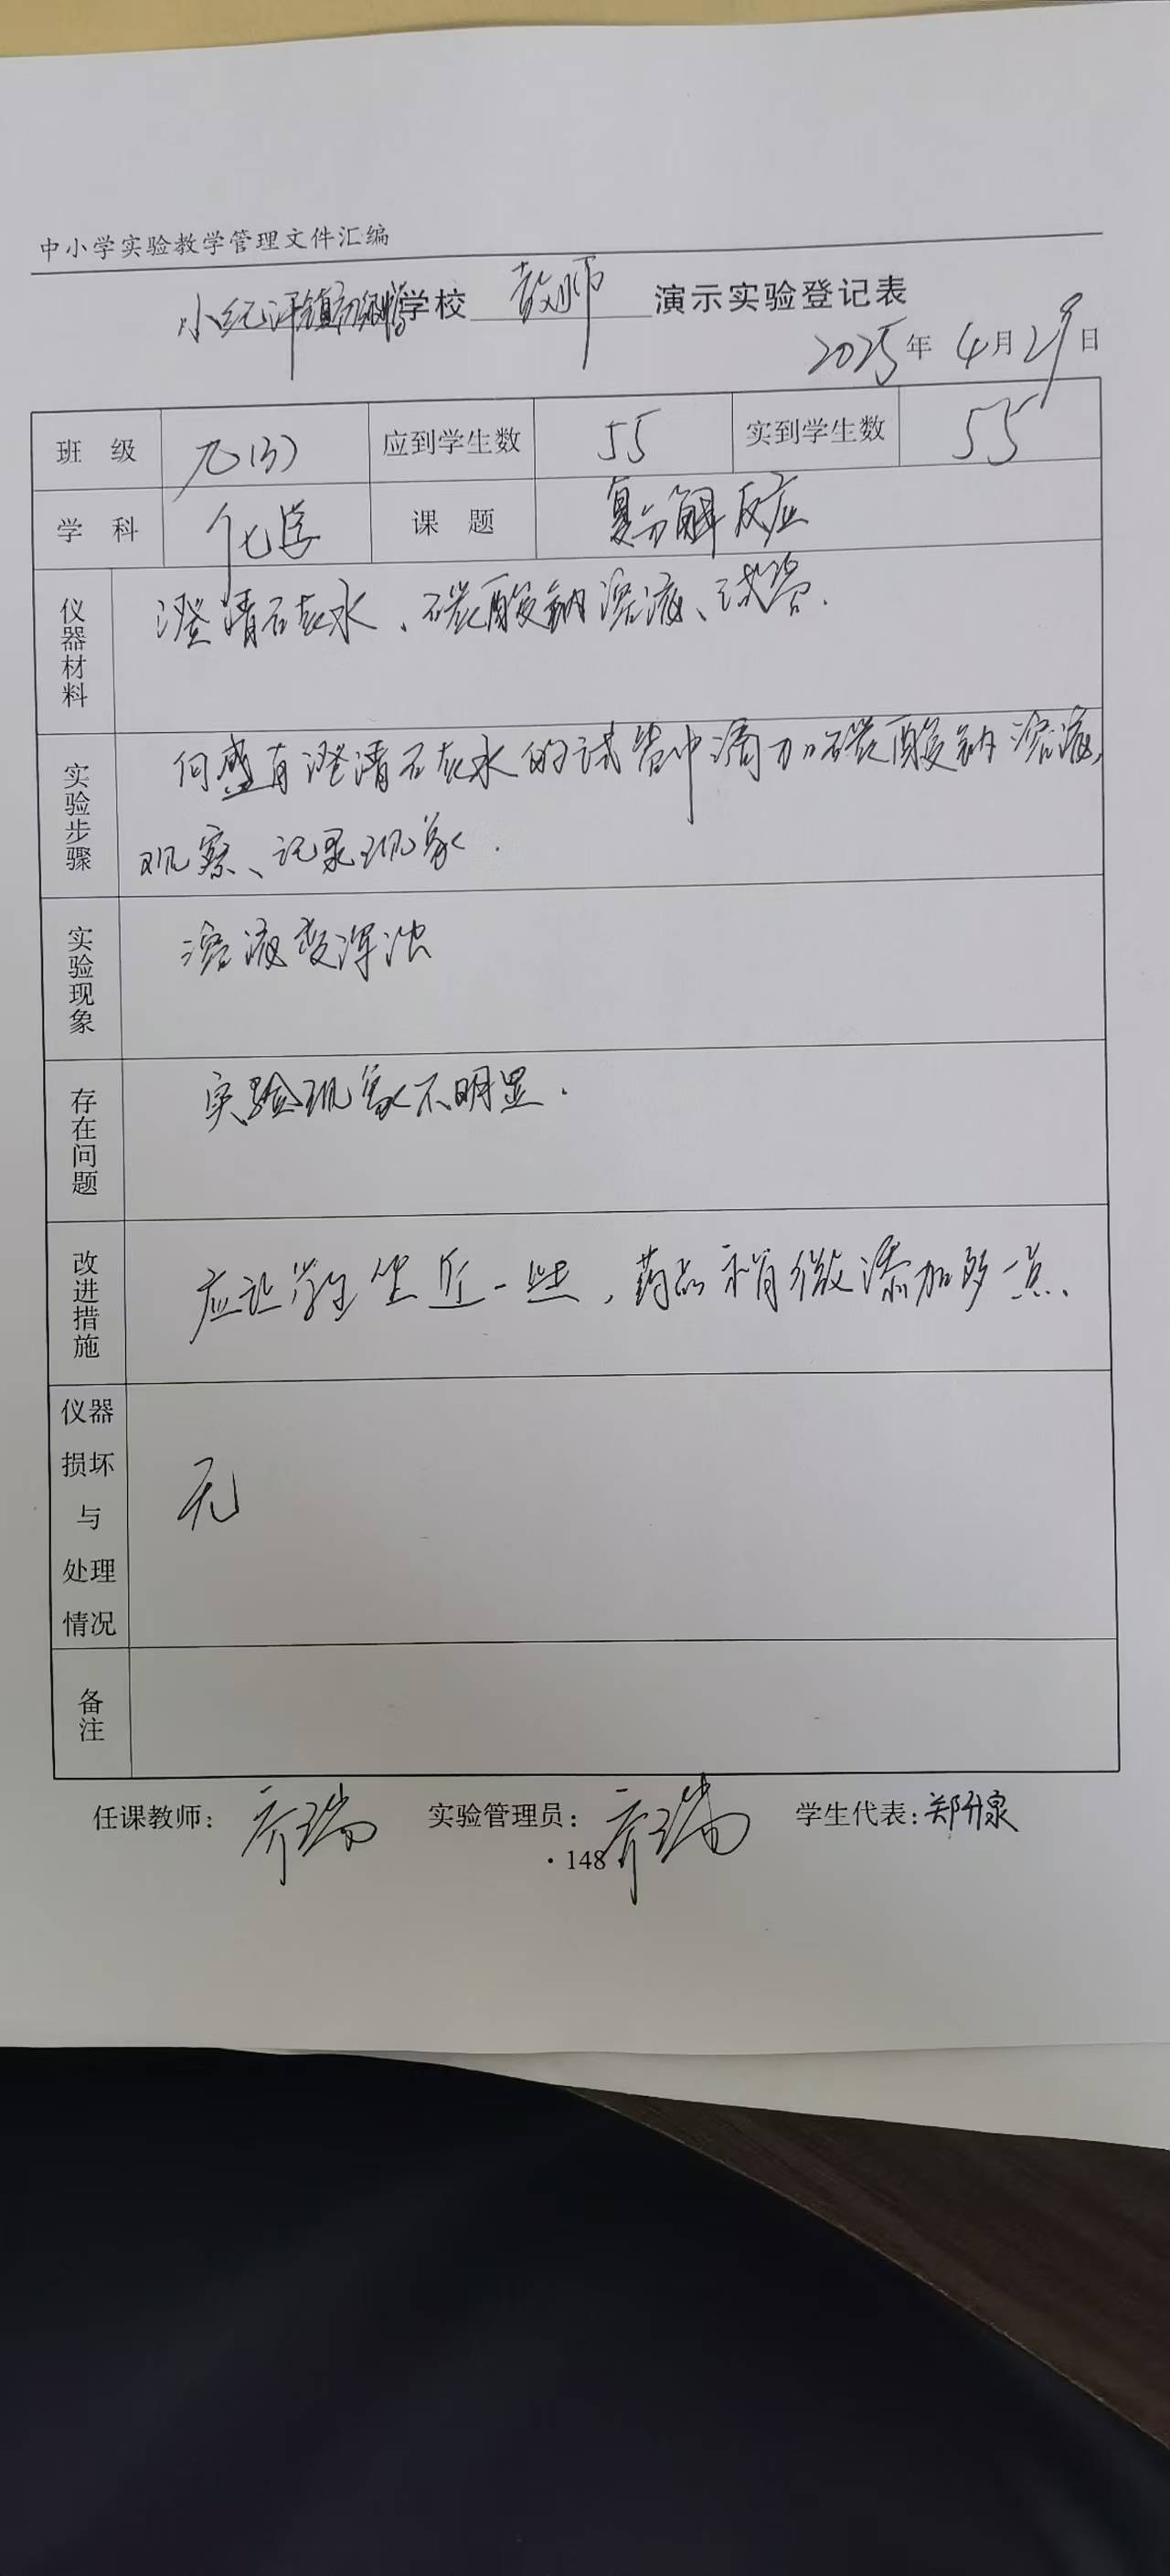 中小学实验教学管理文件汇编
小纪汗镇初级中学学校 教师 演示实验登记表
2025年 4月29日
班 级 九(3) 应到学生数 55 实到学生数 55
学 科 化学 课 题 复分解反应
仪器材料 澄清石灰水、碳酸钠溶液、试管.
实验步骤 向盛有澄清石灰水的试管中滴加碳酸钠溶液,
观察、记录现象.
实验现象 溶液变浑浊
存在问题 实验现象不明显.
改进措施 应让学生坐近一些,药品稍微添加多一点.
仪器
损坏
与
处理
情况
无
备注
任课教师: 齐瑞 实验管理员: 齐瑞 学生代表: 郑升泉
· 148